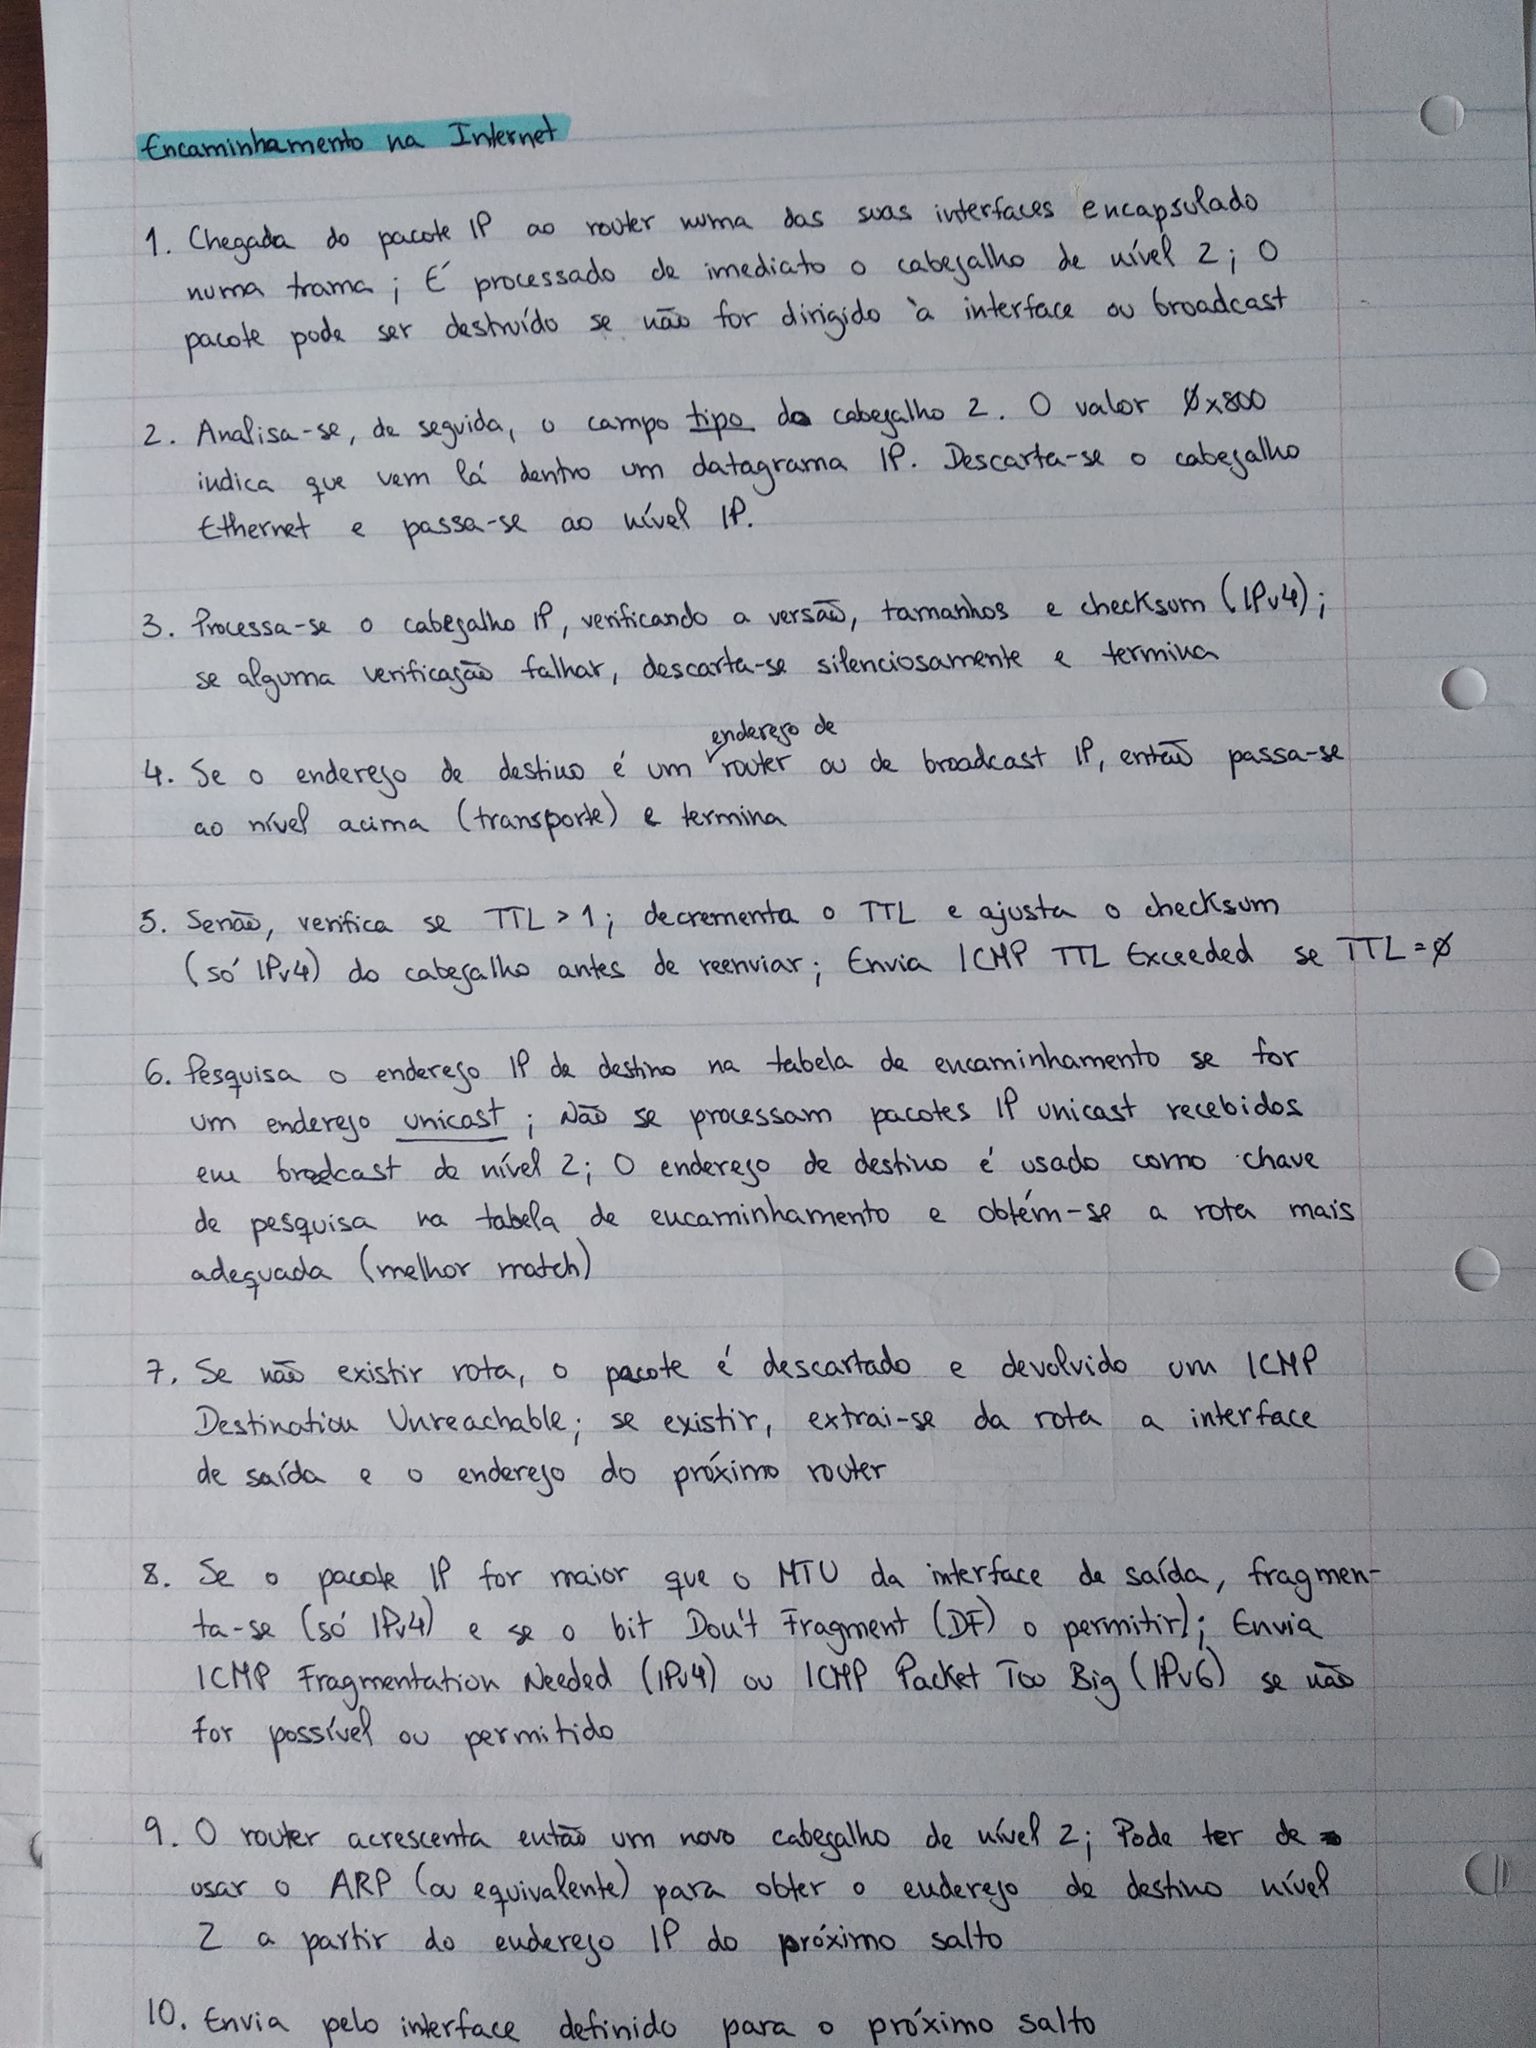 Encaminhamento na Internet
1. Chegada do pacote IP ao router numa das suas interfaces encapsulado
numa trama; É processado de imediato o cabeçalho de nível 2; O
pacote pode ser destruído se não for dirigido à interface ou broadcast
2. Analisa-se, de seguida, o campo tipo do cabeçalho 2. O valor 0x800
indica que vem lá dentro um datagrama IP. Descarta-se o cabeçalho
Ethernet e passa-se ao nível IP.
3. Processa-se o cabeçalho IP, verificando a versão, tamanhos e checksum (IPv4);
se alguma verificação falhar, descarta-se silenciosamente e termina
endereço de
4. Se o endereço de destino é um router ou de broadcast IP, então passa-se
ao nível acima (transporte) e termina
5. Senão, verifica se TTL > 1; decrementa o TTL e ajusta o checksum
(só IPv4) do cabeçalho antes de reenviar; Envia ICMP TTL Exceeded se TTL = 0
6. Pesquisa o endereço IP de destino na tabela de encaminhamento se for
um endereço unicast; Não se processam pacotes IP unicast recebidos
em brodcast de nível 2; O endereço de destino é usado como chave
de pesquisa na tabela de encaminhamento e obtém-se a rota mais
adequada (melhor match)
7. Se não existir rota, o pacote é descartado e devolvido um ICMP
Destination Unreachable; se existir, extrai-se da rota a interface
de saída e o endereço do próximo router
8. Se o pacote IP for maior que o MTU da interface de saída, fragmen-
ta-se (só IPv4) e se o bit Don't Fragment (DF) o permitir); Envia
ICMP Fragmentation Needed (IPv4) ou ICMP Packet Too Big (IPv6) se não
for possível ou permitido
9. O router acrescenta então um novo cabeçalho de nível 2; Pode ter de
usar o ARP (ou equivalente) para obter o endereço de destino nível
2 a partir do endereço IP do próximo salto
10. Envia pelo interface definido para o próximo salto